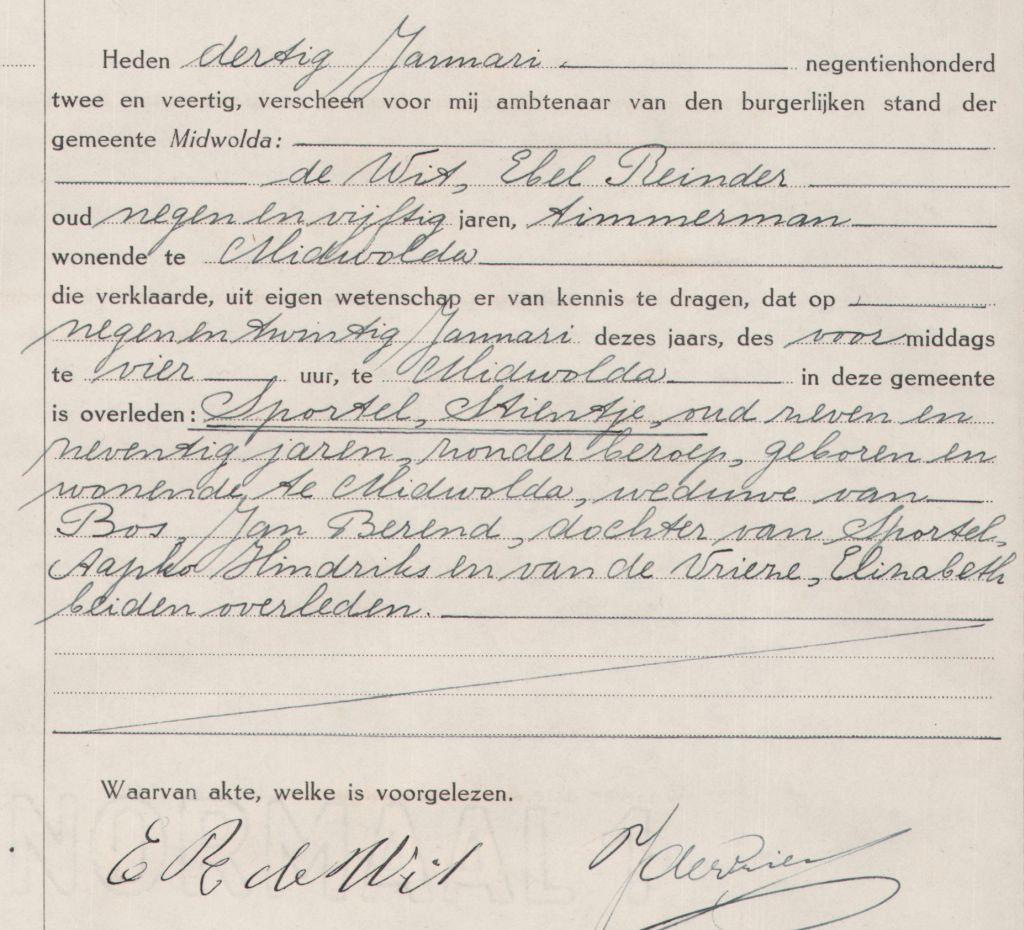 Heden dertig Januari negentienhonderd
twee en veertig, verscheen voor mij ambtenaar van den burgerlijken stand der
gemeente Midwolda:
de Wit, Ebel Reinder
oud negen en vijftig jaren, timmerman
wonende te Midwolda
die verklaarde, uit eigen wetenschap er van kennis te dragen, dat op
negen en twintig Januari dezes jaars, des voormiddags
te vier uur, te Midwolda in deze gemeente
is overleden: Sportel, Stientje, oud zeven en
zeventig jaren, zonder beroep, geboren en
wonende te Midwolda, weduwe van
Bos, Jan Berend, dochter van Sportel,
Aapko Hindriks en van de Vrieze, Elizabeth
beiden overleden.
Waarvan akte, welke is voorgelezen.
E R de Wit